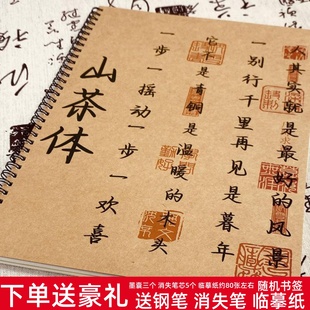 山茶体
其实就是最好的风景
一别行千里再见是暮年
是青铜是温暖的来头
一步一摇动一步一欢喜
下单送豪礼
墨囊三个 消失笔芯5个 临摹纸约80张左右 随机书签
送钢笔 消失笔 临摹纸